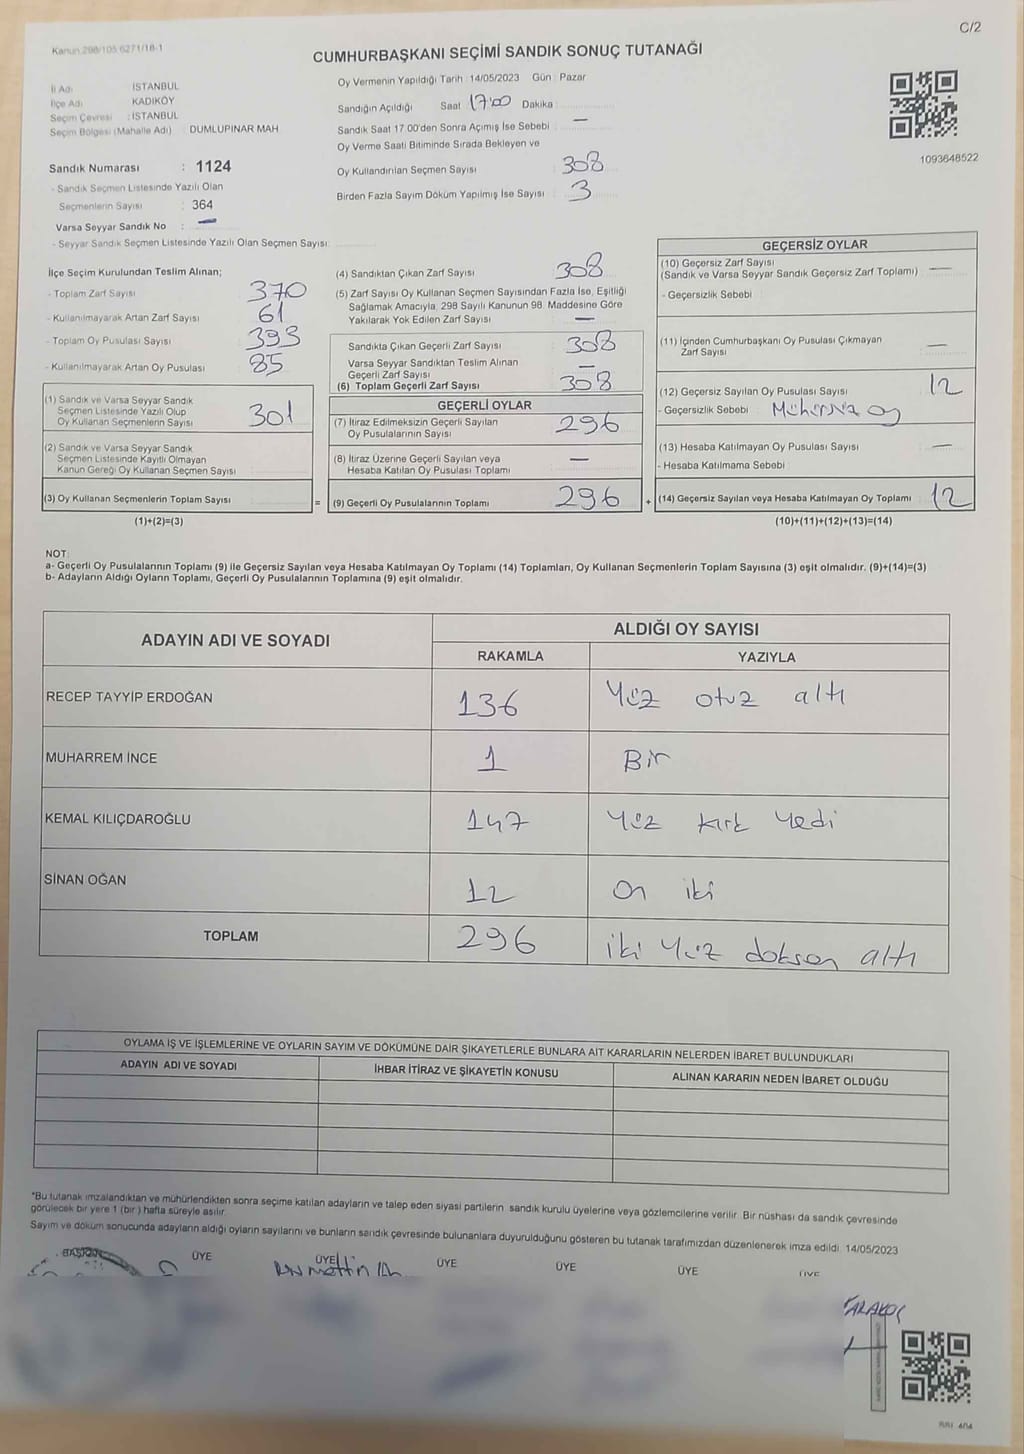 C/2
Kanun 298/105 6271/18-1
CUMHURBAŞKANI SEÇİMİ SANDIK SONUÇ TUTANAĞI
İl Adı İSTANBUL
İlçe Adı KADIKÖY
Seçim Çevresi : İSTANBUL
Seçim Bölgesi (Mahalle Adı) : DUMLUPINAR MAH.
Oy Vermenin Yapıldığı Tarih : 14/05/2023 Gün : Pazar
Sandığın Açıldığı Saat 17:00 Dakika :
Sandık Saat 17.00'den Sonra Açımış İse Sebebi : —
Oy Verme Saati Bitiminde Sırada Bekleyen ve
Oy Kullandırılan Seçmen Sayısı : 308
Birden Fazla Sayım Döküm Yapılmış İse Sayısı : 3
1093648522
Sandık Numarası : 1124
- Sandık Seçmen Listesinde Yazılı Olan
Seçmenlerin Sayısı : 364
Varsa Seyyar Sandık No : —
- Seyyar Sandık Seçmen Listesinde Yazılı Olan Seçmen Sayısı:
İlçe Seçim Kurulundan Teslim Alınan;
- Toplam Zarf Sayısı 370
- Kullanılmayarak Artan Zarf Sayısı 61
- Toplam Oy Pusulası Sayısı 393
- Kullanılmayarak Artan Oy Pusulası 85
(1) Sandık ve Varsa Seyyar Sandık
Seçmen Listesinde Yazılı Olup
Oy Kullanan Seçmenlerin Sayısı 301
(2) Sandık ve Varsa Seyyar Sandık
Seçmen Listesinde Kayıtlı Olmayan
Kanun Gereği Oy Kullanan Seçmen Sayısı
(3) Oy Kullanan Seçmenlerin Toplam Sayısı =
(1)+(2)=(3)
(4) Sandıktan Çıkan Zarf Sayısı 308
(5) Zarf Sayısı Oy Kullanan Seçmen Sayısından Fazla İse, Eşitliği
Sağlamak Amacıyla, 298 Sayılı Kanunun 98. Maddesine Göre
Yakılarak Yok Edilen Zarf Sayısı —
Sandıkta Çıkan Geçerli Zarf Sayısı 308
Varsa Seyyar Sandıktan Teslim Alınan
Geçerli Zarf Sayısı —
(6) Toplam Geçerli Zarf Sayısı 308
GEÇERLİ OYLAR
(7) İtiraz Edilmeksizin Geçerli Sayılan
Oy Pusulalarının Sayısı 296
(8) İtiraz Üzerine Geçerli Sayılan veya
Hesaba Katılan Oy Pusulası Toplamı —
(9) Geçerli Oy Pusulalarının Toplamı 296 +
GEÇERSİZ OYLAR
(10) Geçersiz Zarf Sayısı
(Sandık ve Varsa Seyyar Sandık Geçersiz Zarf Toplamı) —
- Geçersizlik Sebebi
(11) İçinden Cumhurbaşkanı Oy Pusulası Çıkmayan
Zarf Sayısı —
(12) Geçersiz Sayılan Oy Pusulası Sayısı 12
- Geçersizlik Sebebi Mühürsüz oy
(13) Hesaba Katılmayan Oy Pusulası Sayısı —
- Hesaba Katılmama Sebebi
(14) Geçersiz Sayılan veya Hesaba Katılmayan Oy Toplamı 12
(10)+(11)+(12)+(13)=(14)
NOT:
a- Geçerli Oy Pusulalarının Toplamı (9) ile Geçersiz Sayılan veya Hesaba Katılmayan Oy Toplamı (14) Toplamları, Oy Kullanan Seçmenlerin Toplam Sayısına (3) eşit olmalıdır. (9)+(14)=(3)
b- Adayların Aldığı Oyların Toplamı, Geçerli Oy Pusulalarının Toplamına (9) eşit olmalıdır.
ADAYIN ADI VE SOYADI ALDIĞI OY SAYISI
RAKAMLA YAZIYLA
RECEP TAYYİP ERDOĞAN 136 Yüz otuz altı
MUHARREM İNCE 1 Bir
KEMAL KILIÇDAROĞLU 147 Yüz kırk yedi
SİNAN OĞAN 12 On iki
TOPLAM 296 iki yüz doksan altı
OYLAMA İŞ VE İŞLEMLERİNE VE OYLARIN SAYIM VE DÖKÜMÜNE DAİR ŞİKAYETLERLE BUNLARA AİT KARARLARIN NELERDEN İBARET BULUNDUKLARI
ADAYIN ADI VE SOYADI İHBAR İTİRAZ VE ŞİKAYETİN KONUSU ALINAN KARARIN NEDEN İBARET OLDUĞU
*Bu tutanak imzalandıktan ve mühürlendikten sonra seçime katılan adayların ve talep eden siyasi partilerin sandık kurulu üyelerine veya gözlemcilerine verilir. Bir nüshası da sandık çevresinde
görülecek bir yere 1 (bir ) hafta süreyle asılır.
Sayım ve döküm sonucunda adayların aldığı oyların sayılarını ve bunların sandık çevresinde bulunanlara duyurulduğunu gösteren bu tutanak tarafımızdan düzenlenerek imza edildi. 14/05/2023
BAŞKAN ÜYE ÜYE ÜYE ÜYE ÜYE ÜYE
KARAKOÇ